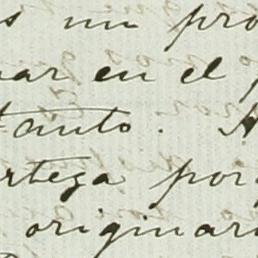 s un pro
ar en el p
tanto. A
rtega por
originari